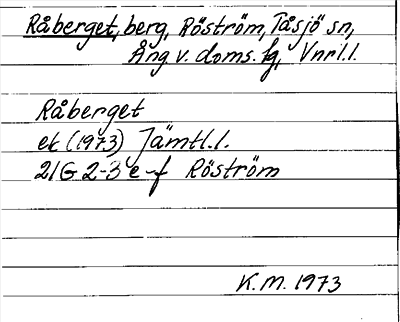 Råberget, berg, Röström, Tåsjö sn,
Ång v. doms. fg, Vnrl.l.
Råberget
ek (1973) Jämtl.l.
21G 2-3 e-f Röström
K.M. 1973